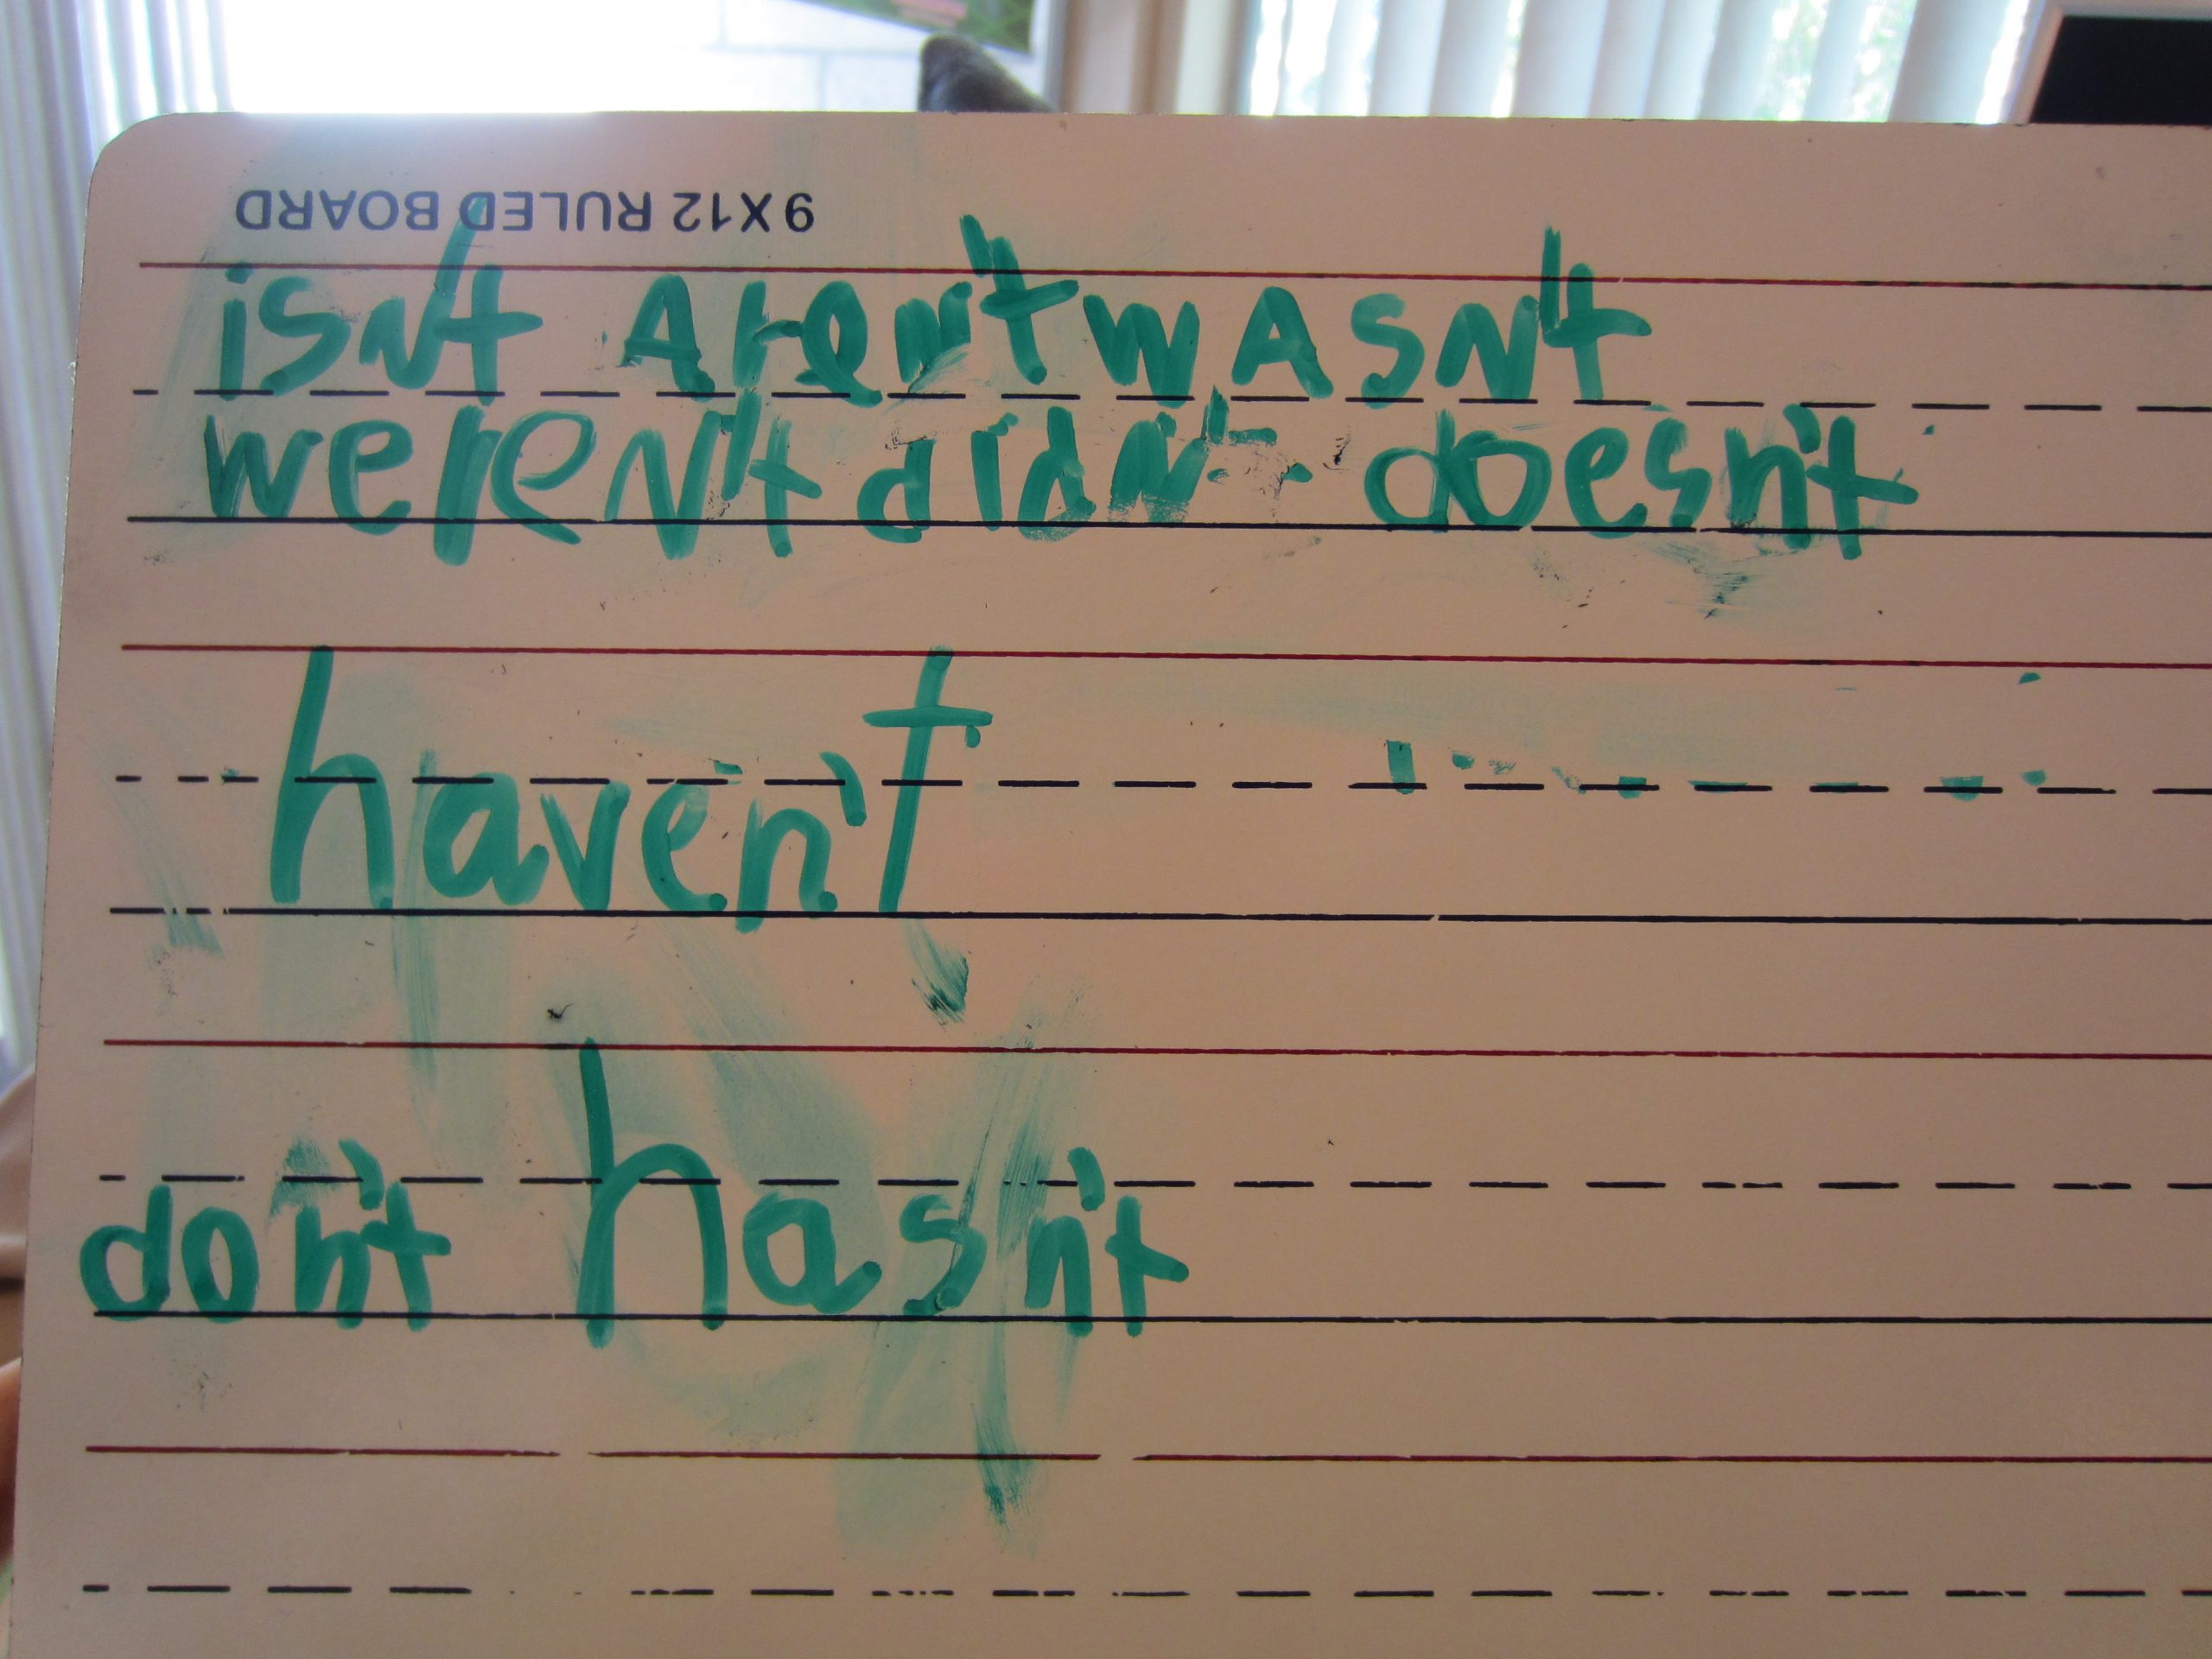 9X12 RULED BOARD
isn't Aren't wAsn't
weren't didn't doesn't
haven't
don't hasn't